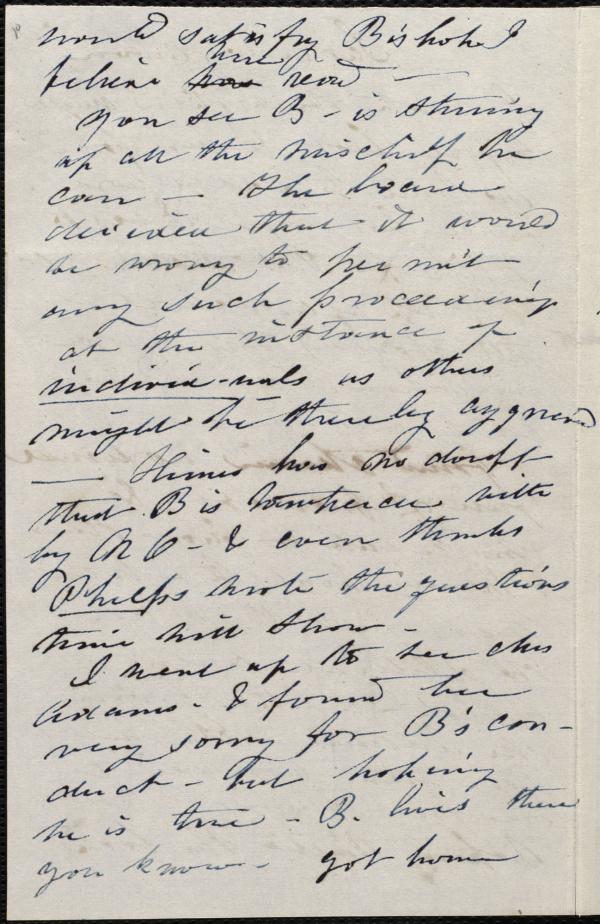 would satisfy Bishop I
believe him read —
You see B - is stirring
up all the mischief he
can — The board
decided that it would
be wrong to permit
any such proceeding
at the instance of
individ-uals as others
might be thereby aggrieved
— Himes has no doubt
that B is tampered with
by N C - & even thinks
Phelps wrote the questions
time will show -
I went up to see Chs
Adams - & found her
very sorry for B's con-
duct - but hoping
he is true - B. lives there
you know - got home